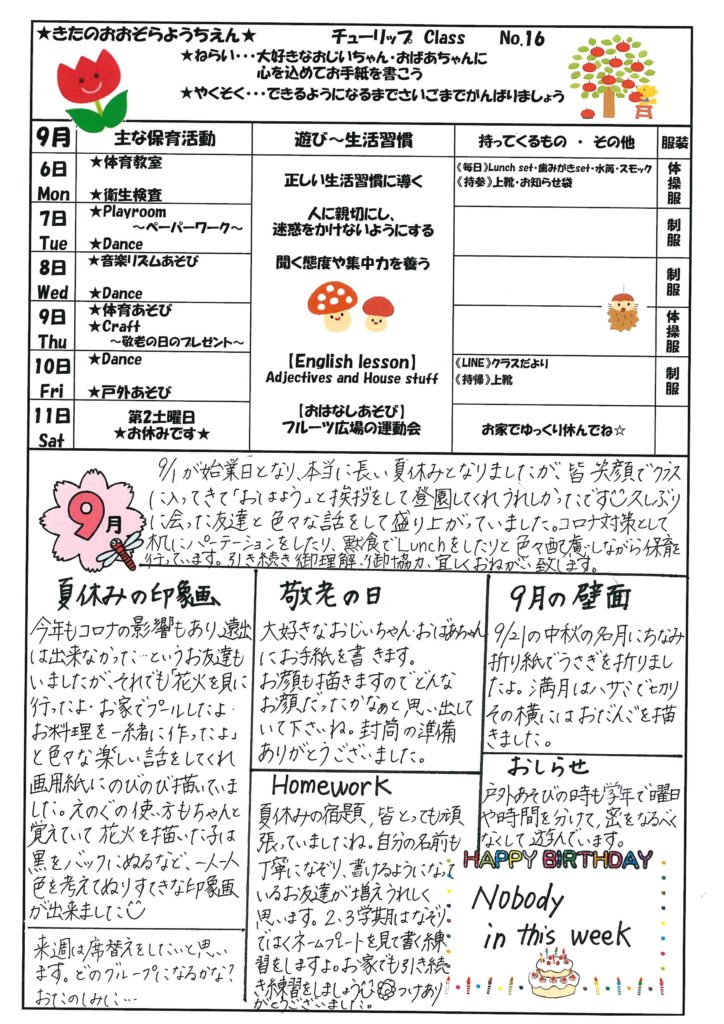 ★きたのおおぞらようちえん★
チューリップ Class No.16
★ねらい・・・大好きなおじいちゃん・おばあちゃんに
心を込めてお手紙を書こう
★やくそく・・・できるようになるまでさいごまでがんばりましょう
9月 主な保育活動 遊び～生活習慣 持ってくるもの ・ その他 服装
6日 Mon
★体育教室
★衛生検査
正しい生活習慣に導く
《毎日》Lunch set・歯みがきset・水筒・スモック
《持参》上靴・お知らせ袋
体操服
7日 Tue
★Playroom
～ペーパーワーク～
★Dance
人に親切にし、
迷惑をかけないようにする
制服
8日 Wed
★音楽リズムあそび
★Dance
聞く態度や集中力を養う
制服
9日 Thu
★体育あそび
★Craft
～敬老の日のプレゼント～
体操服
10日 Fri
★Dance
★戸外あそび
【English lesson】
Adjectives and House stuff
《LINE》クラスだより
《持帰》上靴
制服
11日 Sat
第2土曜日
★お休みです★
【おはなしあそび】
フルーツ広場の運動会
お家でゆっくり休んでね☆
9月
9/1が始業日となり、本当に長い夏休みとなりましたが、皆笑顔でクラス
に入ってきて「おはよう」と挨拶をして登園してくれうれしかったです 久しぶり
に会った友達と色々な話をして盛り上がっていました。コロナ対策として
机にパーテーションをしたり、黙食でLunchをしたりと色々配慮しながら保育を
行っています。引き続き御理解、御協力、宜しくおねがい致します。
夏休みの印象画
今年もコロナの影響もあり、遠出
は出来なかった…というお友達も
いましたが、それでも「花火を見に
行ったよ・お家でプールしたよ・
お料理を一緒に作ったよ」
と色々な楽しい話をしてくれ
画用紙にのびのび描いていま
した。えのぐの使い方もちゃんと
覚えていて花火を描いた子は
黒をバックにぬるなど、一人一人
色を考えてぬりすてきな印象画
が出来ました
来週は席替えをしたいと思い
ます。どのグループになるかな？
おたのしみに…
敬老の日
大好きなおじいちゃん・おばあちゃん
にお手紙を書きます。
お顔も描きますのでどんな
お顔だったかなぁと思い出して
いて下さいね。封筒の準備
ありがとうございました。
Homework
夏休みの宿題、皆とっても頑
張っていましたね。自分の名前も
丁寧になぞり、書けるようになって
いるお友達が増えうれしく
思います。2、3学期はなぞり
ではくネームプレートを見て書く練
習をしますよ。お家でも引き続
き練習をしましょう つけあり
がとうございました。
9月の壁面
9/21の中秋の名月にちなみ
折り紙でうさぎを折りまし
たよ。満月はハサミで切り
その横にはおだんごを描
きました。
おしらせ
戸外あそびの時も学年で曜日
や時間を分けて、密をなるべく
なくして遊んでいます。
HAPPY BIRTHDAY
Nobody
in this week